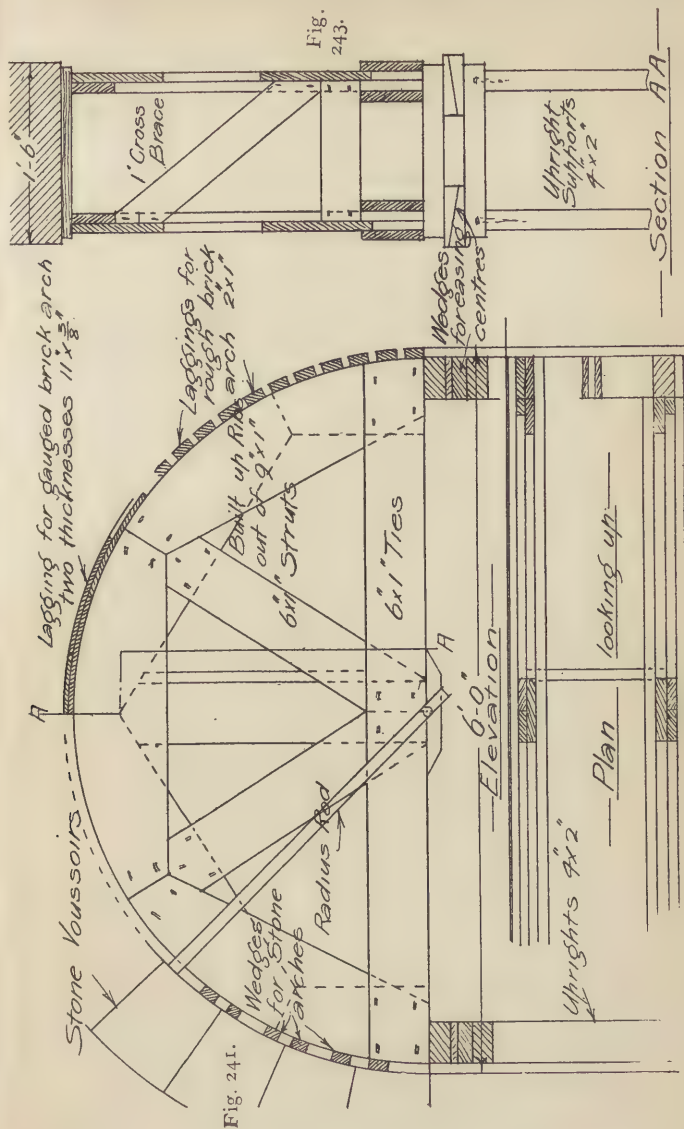 Fig. 241.
Stone Voussoirs
A
Lagging for gauged brick arch
two thicknesses 11" x 3/8"
Laggings for
rough brick
arch 2"x1"
Built up Ribs
out of 9"x1"
6"x1" Struts
6"x1" Ties
Wedges
for Stone
arches
Radius Rod
A
6'-0"
Elevation
Wedges
for easing
centres
Uprights 4"x2"
Plan looking up
Fig.
243.
1'-6"
1" Cross
Brace
Upright
Supports
4"x2"
Section AA